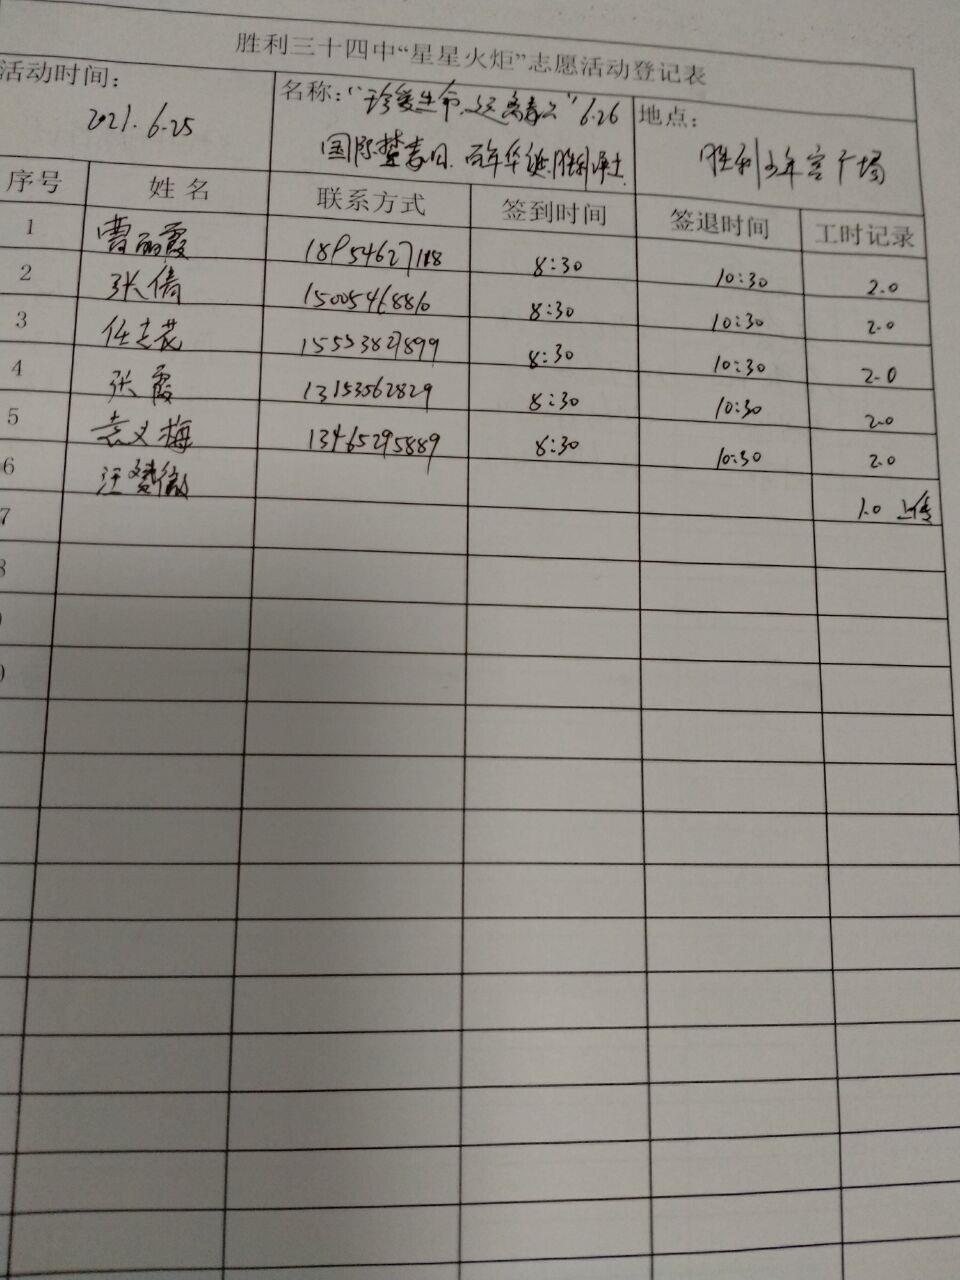 胜利三十四中“星星火炬”志愿活动登记表
活动时间：
2021.6.25
名称：“珍爱生命.远离毒品”6.26
国际禁毒日.百年华诞.胜利净土
地点：
胜利少年宫广场
序号 姓名 联系方式 签到时间 签退时间 工时记录
1 曹丽霞 18954627188 8:30 10:30 2.0
2 张倩 15005468810 8:30 10:30 2.0
3 任志花 15553827899 8:30 10:30 2.0
4 张霞 13153562829 8:30 10:30 2.0
5 袁义梅 13465295889 8:30 10:30 2.0
6 汪赟微 1.0 上传
7
8